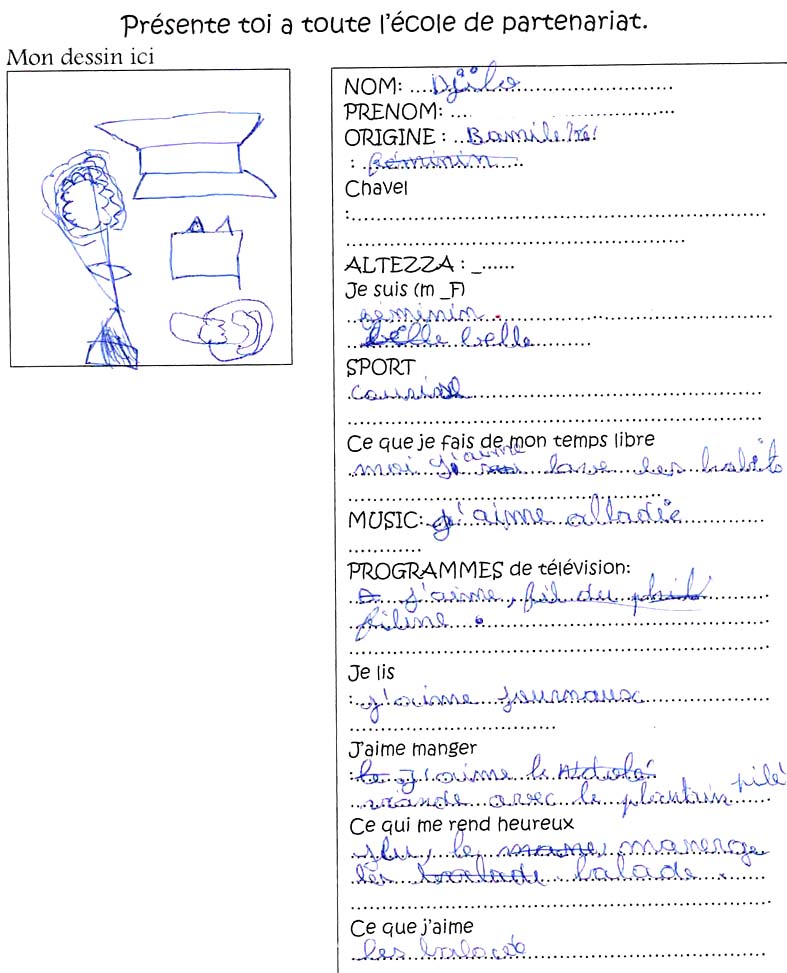 Présente toi a toute l'école de partenariat.
Mon dessin ici
NOM: ....Djilo....
PRENOM: ....
ORIGINE : ..Bamiléké
: .féminin...
Chavel
:....
ALTEZZA : _......
Je suis (m _F)
féminin.
belle belle
SPORT
Ce que je fais de mon temps libre
moi j'aime lave les habits
MUSIC: j'aime alladie
PROGRAMMES de télévision:
j'aime, fil du
filme .
Je lis
: j'aime journaux
J'aime manger
: j'aime le Ndolé
viande avec le plantain pilé
Ce qui me rend heureux
le, manerge
les balade .
Ce que j'aime
les